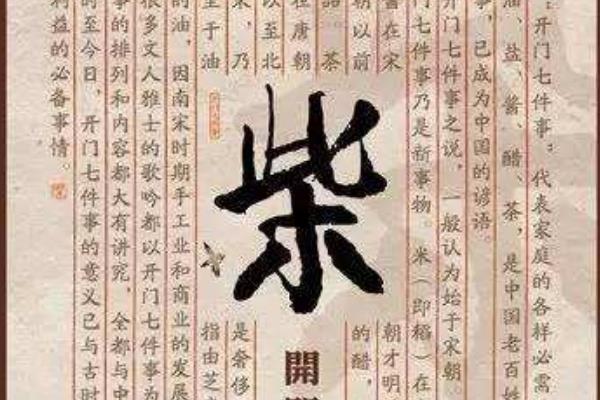 ：开门七件事：代表家庭的各样必需
油、盐、酱、醋、茶，是中国老百姓
事，已成为中国的谚语。
开门七件事之说，一般认为始于宋朝。
门七件事乃是新事物。米（即稻）在
酱在宋
朝才明
朝以前
的醋，
茶
在唐朝
以至北
来，乃
是奢侈
至于油
指由芝
的油，因南宋时期手工业和商业的发展
很多文人雅士的歌吟都以开门七件事为
事的排列和内容都大有讲究，全都与中
的至今日，开门七件事的意义已与古时
利益的必备事情。
柴
開